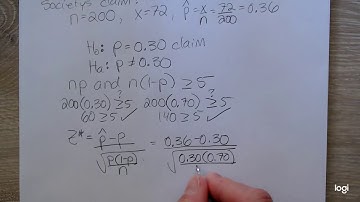 Society's claim:
n=200, x=72, p̂ = x/n = 72/200 = 0.36
H₀: p = 0.30 claim
Hₐ: p ≠ 0.30
np and n(1-p) ≥ 5
200(0.30) ≥? 5 200(0.70) ≥? 5
60 ≥ 5 ✓ 140 ≥ 5 ✓
z* = p̂ - p / √(p(1-p)/n) = 0.36 - 0.30 / √(0.30(0.70)
logi